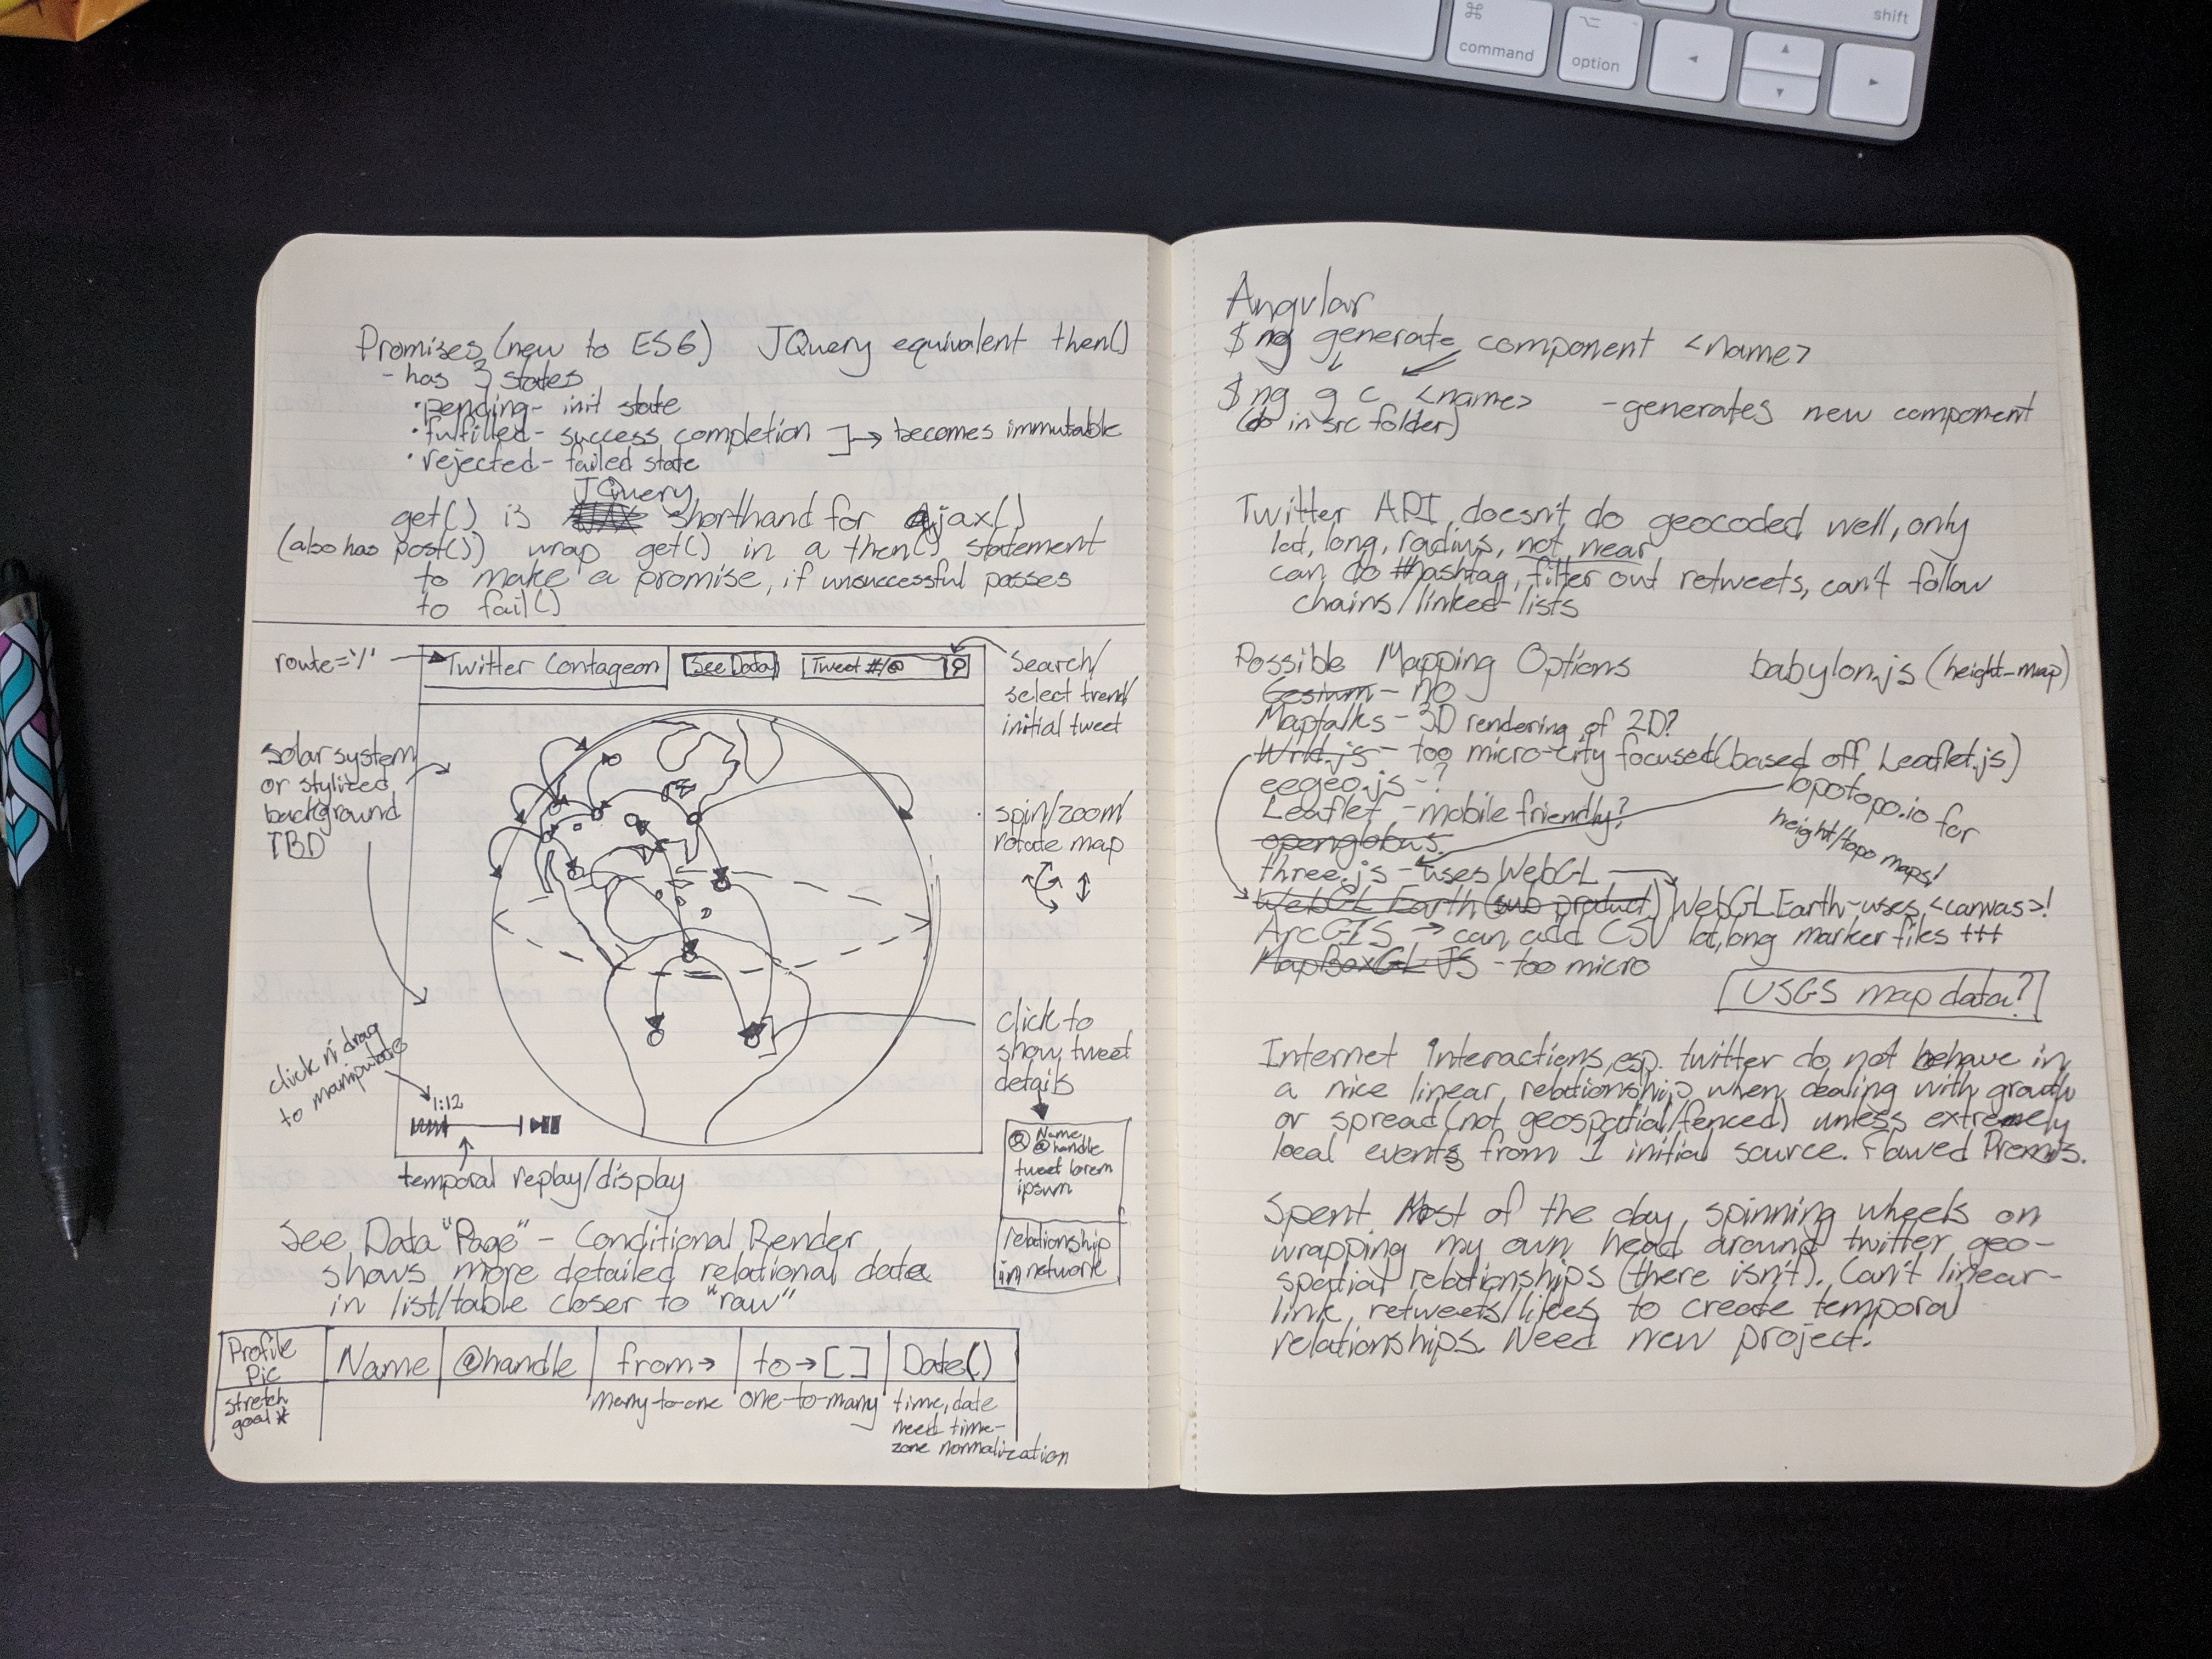 shift
⌘
command
⌥
option
Promises (new to ES6) JQuery equivalent then()
- has 3 states
• pending - init state
• fulfilled - success completion ]→ becomes immutable
• rejected - failed state
JQuery
get() is shorthand for Ajax()
(also has post()) wrap get() in a then() statement
to make a promise, if unsuccessful passes
to fail()
route='/'
Twitter Contageon
See Data
Tweet #/@
search/
select trend/
initial tweet
solar system
or stylized
background
TBD
spin/zoom/
rotate map
click to
show tweet
details
click n' drag
to manipulate
1:12
temporal replay/display
Name
@handle
tweet lorem
ipsum
relationship
in network
See Data "Page" - Conditional Render
shows more detailed relational data
in list/table closer to "raw"
Profile
Pic
Name
@handle
from→
to→[]
Date()
stretch
goal*
many-to-one
one-to-many
time, date
need time-
zone normalization
Angular
$ ng generate component <name>
$ ng g c <name> - generates new component
(do in src folder)
Twitter API, doesn't do geocoded well, only
lat, long, radius, not near
can do #hashtag, filter out retweets, can't follow
chains/linked-lists
Possible Mapping Options babylon.js (height-map)
Cesium - NO
Maptalks - 3D rendering of 2D?
Wrld.js - too micro-city focused (based off Leaflet.js)
eegeo.js - ?
Leaflet - mobile friendly?
topotopo.io for
height/topo maps!
openglobus
three.js - uses WebGL
WebGL Earth (sub product) WebGLEarth-uses <canvas>!
ArcGIS → can add CSV lat,long marker files +++
MapBoxGL JS - too micro
USGS map data?
Internet Interactions, esp. twitter do not behave in
a nice linear relationship when dealing with growth
or spread (not geospatial/fenced) unless extremely
local events from 1 initial source. Flawed Premis.
Spent Most of the day, spinning wheels on
wrapping my own head around twitter geo-
spatial relationships (there isn't). Can't linear-
link retweets/likes to create temporal
relationships. Need new project.